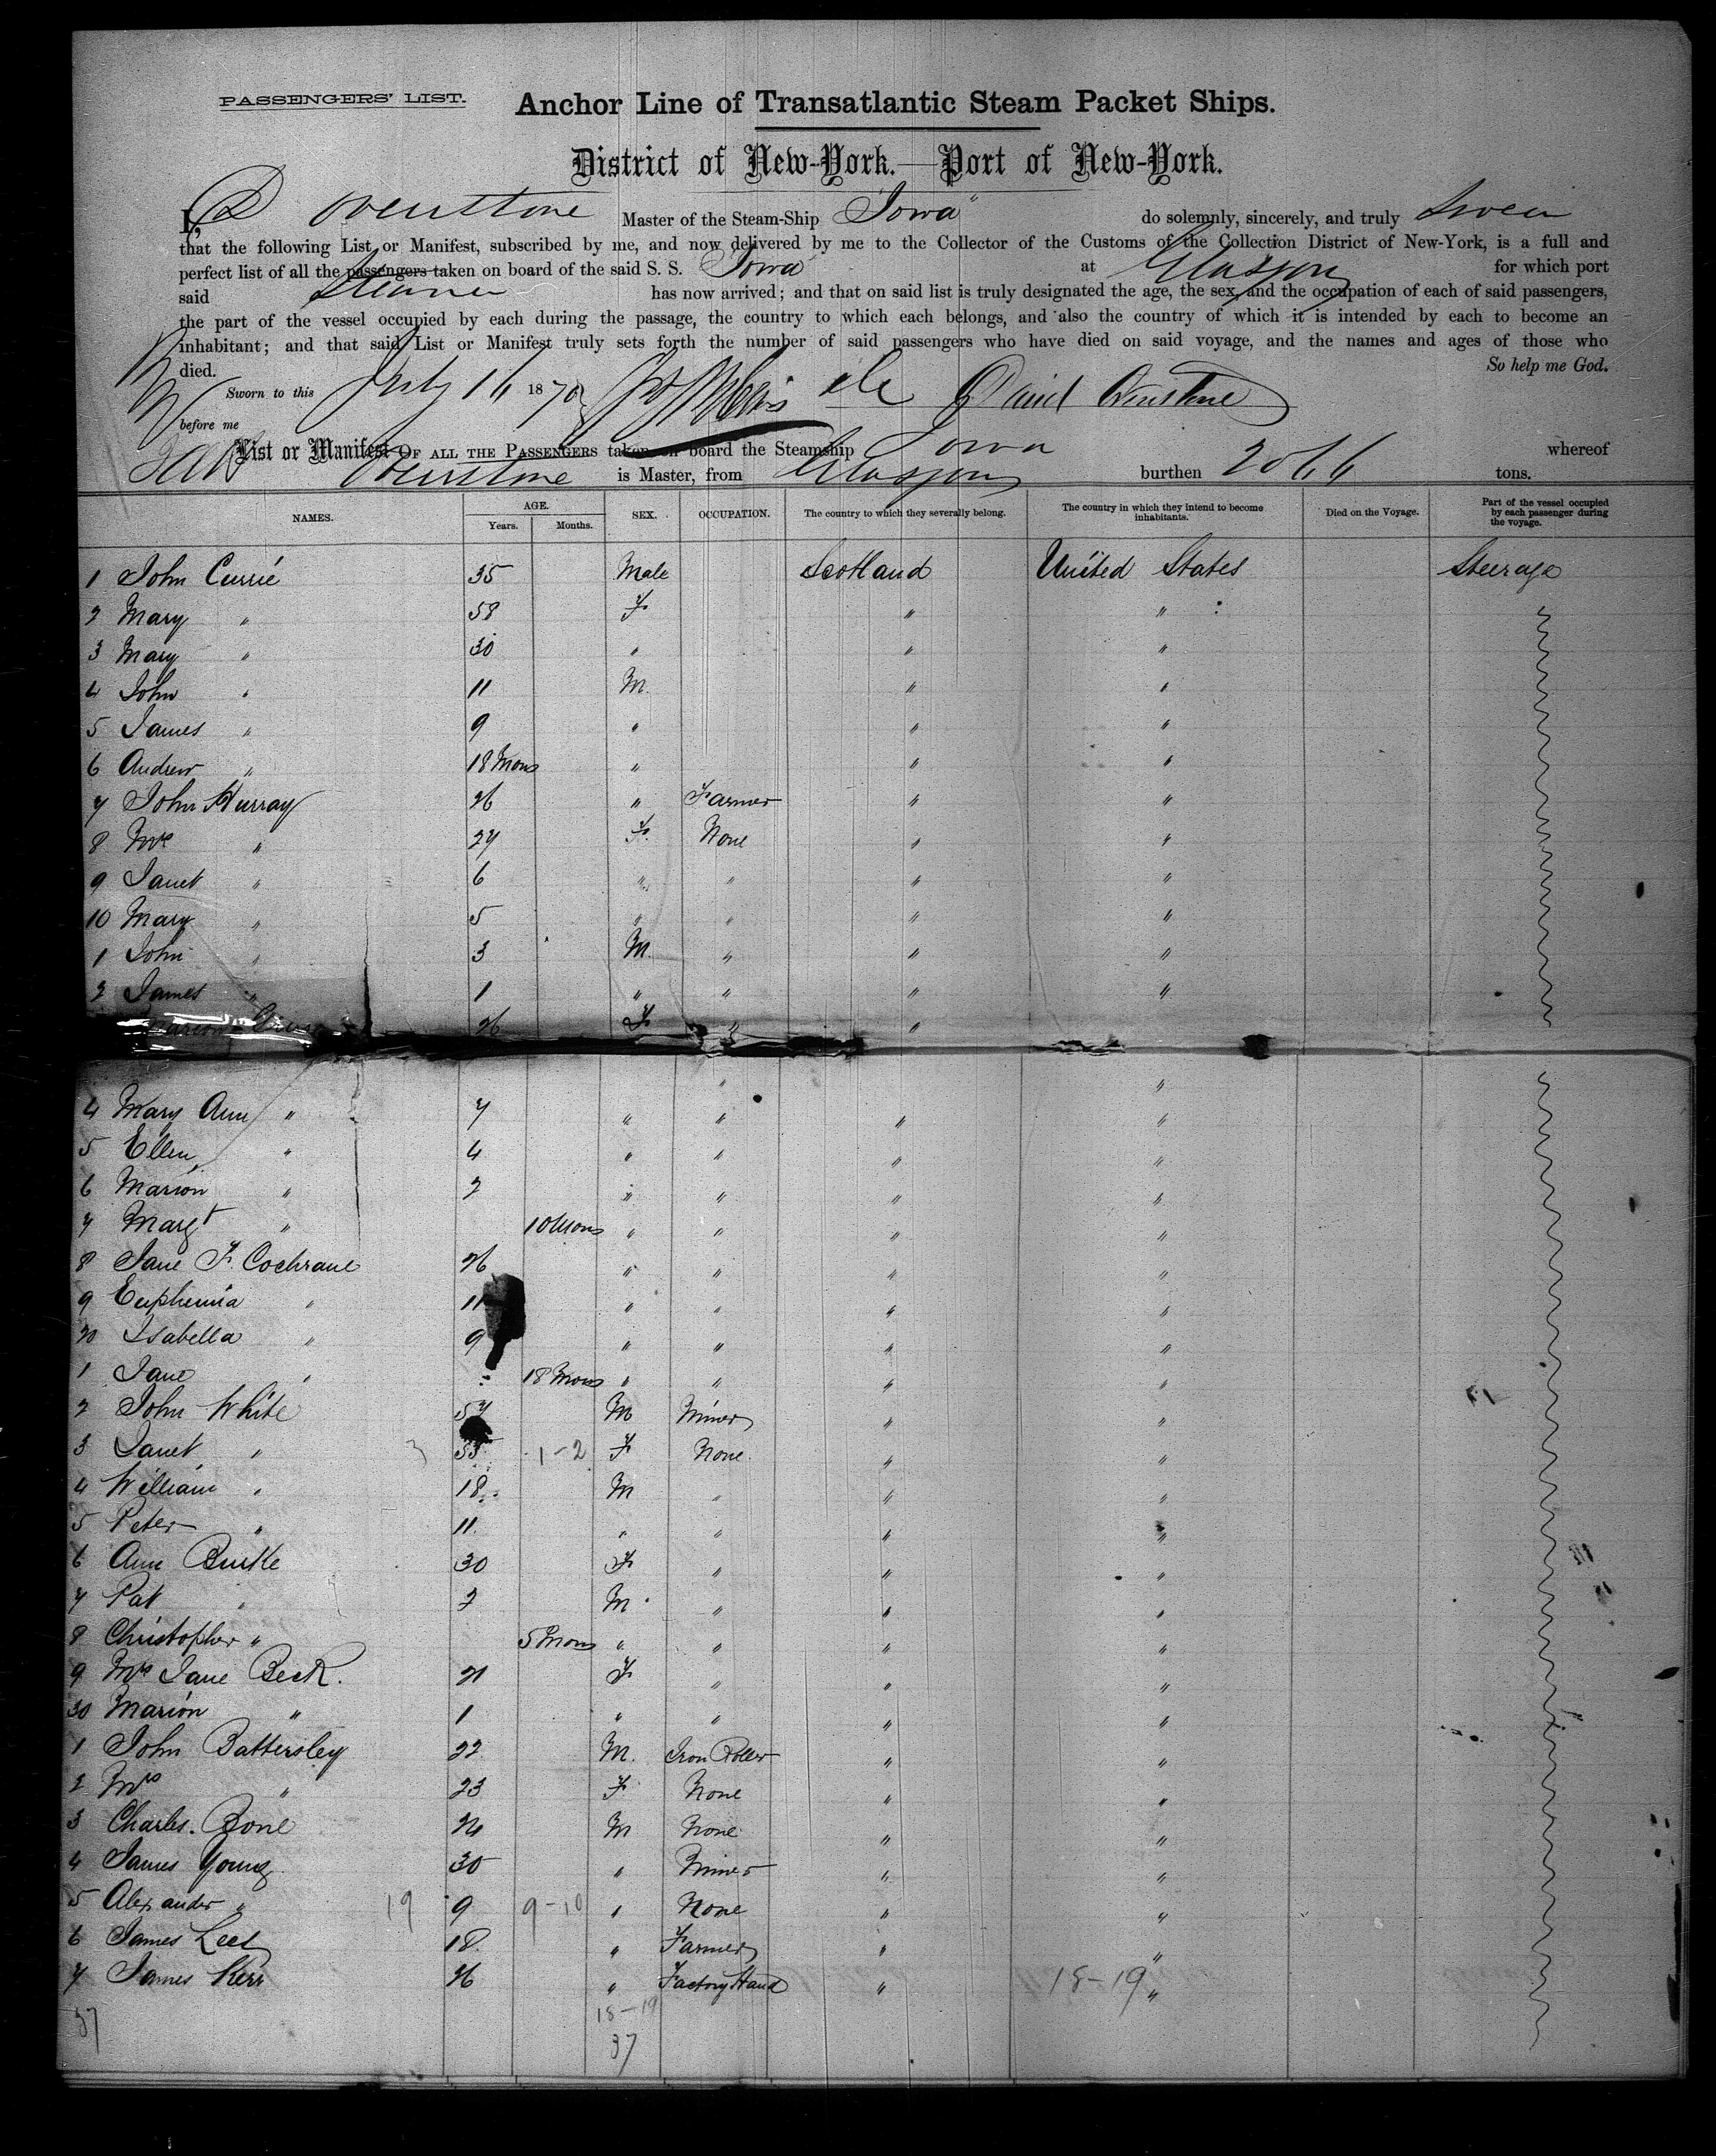 PASSENGERS' LIST. Anchor Line of Transatlantic Steam Packet Ships.
District of New-York.—Port of New-York.
I, D Ovenstone Master of the Steam-Ship "Iowa" do solemnly, sincerely, and truly Swear
that the following List or Manifest, subscribed by me, and now delivered by me to the Collector of the Customs of the Collection District of New-York, is a full and
perfect list of all the passengers taken on board of the said S. S. Iowa at Glasgow for which port
said Steamer has now arrived; and that on said list is truly designated the age, the sex, and the occupation of each of said passengers,
the part of the vessel occupied by each during the passage, the country to which each belongs, and also the country of which it is intended by each to become an
inhabitant; and that said List or Manifest truly sets forth the number of said passengers who have died on said voyage, and the names and ages of those who
died. So help me God.
Sworn to this July 16 1870 David Ovenstone
before me
List or Manifest OF ALL THE PASSENGERS taken on board the Steamship Iowa whereof
Ovenstone is Master, from Glasgow burthen 2066 tons.
NAMES. AGE. Years. Months. SEX. OCCUPATION. The country to which they severally belong. The country in which they intend to become inhabitants. Died on the Voyage. Part of the vessel occupied by each passenger during the voyage.
1 John Currie 35 Male Scotland United States Steerage
2 Mary " 58 F " "
3 Mary " 30 " " "
4 John " 11 M. " "
5 James " 9 " " "
6 Andrew " 18 Mons " " "
7 John Murray 26 " Farmer " "
8 Mrs " 27 F. None " "
9 Janet " 6 " " " "
10 Mary " 5 " " " "
1 John " 3 M. " " "
2 James " 1 " " " "
Marion 26 F " " "
4 Mary Ann " 7 " " " "
5 Ellen " 4 " " " "
6 Marion " 2 " " " "
7 Margt " 10 Mons " " " "
8 Jane F. Cochrane 26 " " " "
9 Euphemia " 11 " " " "
20 Isabella " 9 " " " "
1 Jane " 18 Mons " " " "
2 John White 57 M Miner " "
3 Janet " 55 1-2 F None " "
4 William " 18 M " " "
5 Peter " 11 " " " "
6 Ann Burke 30 F " " "
7 Pat " 2 M " " "
8 Christopher " 5 Mons " " " "
9 Mrs Jane Beck. 21 F " " "
30 Marion " 1 " " " "
1 John Battersley 22 M. Iron Roller " "
2 Mrs " 23 F None " "
3 Charles. Bone 21 M None " "
4 James Young 30 " Miner " "
5 Alexander " 19 9 9-10 " None " "
6 James Lees 18 " Farmer " "
7 James Kerr 26 " Factory Hand " 18-19 "
37 18-19
37